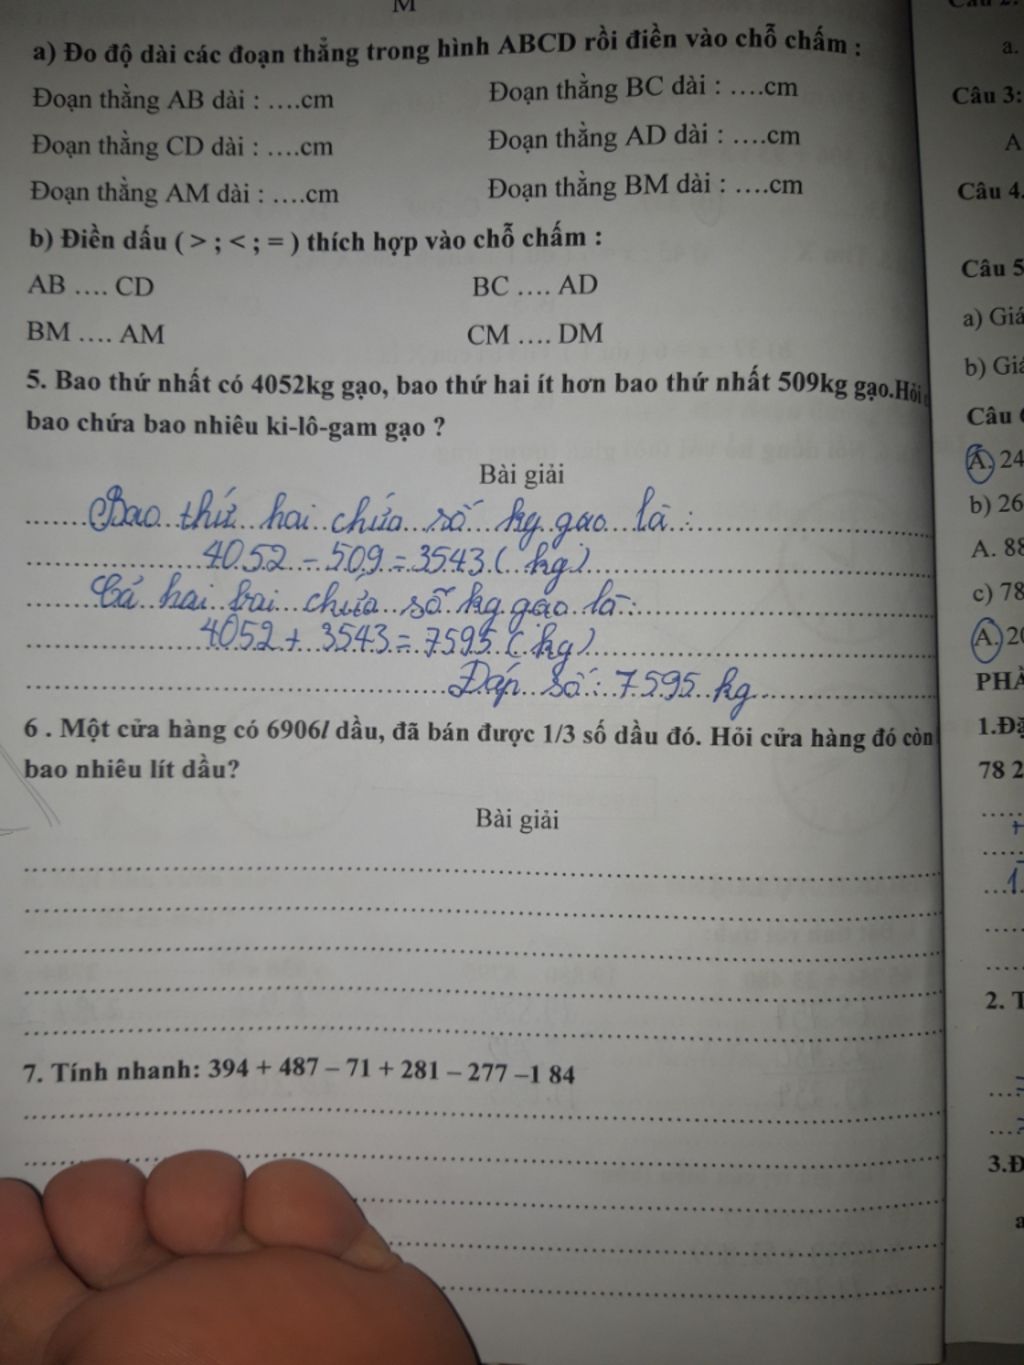 M
a) Đo độ dài các đoạn thẳng trong hình ABCD rồi điền vào chỗ chấm :
Đoạn thẳng AB dài : ....cm
Đoạn thẳng BC dài : ....cm
Đoạn thẳng CD dài : ....cm
Đoạn thẳng AD dài : ....cm
Đoạn thẳng AM dài : ....cm
Đoạn thẳng BM dài : ....cm
b) Điền dấu ( > ; < ; = ) thích hợp vào chỗ chấm :
AB .... CD
BC .... AD
BM .... AM
CM .... DM
5. Bao thứ nhất có 4052kg gạo, bao thứ hai ít hơn bao thứ nhất 509kg gạo.Hỏi
bao chứa bao nhiêu ki-lô-gam gạo ?
Bài giải
Bao thứ hai chứa số kg gạo là :
4052 - 509 = 3543 ( kg )
Cả hai bai chứa số kg gạo là :
4052 + 3543 = 7595 ( kg )
Đáp số : 7595 kg
6 . Một cửa hàng có 6906l dầu, đã bán được 1/3 số dầu đó. Hỏi cửa hàng đó còn
bao nhiêu lít dầu?
Bài giải
7. Tính nhanh: 394 + 487 – 71 + 281 – 277 –1 84
a.
Câu 3:
A
Câu 4.
Câu 5
a) Giá
b) Giá
Câu
A. 24
b) 26
A. 88
c) 78
A. 20
PHẦ
1.Đặ
78 2
2. T
3.Đ
a